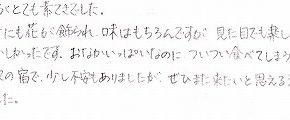 がとても素てきでした。
にも花が飾られ、味はもちろんですが 見た目でも楽し
しかったです。おなかいっぱいなのに ついつい食べてしまう
の宿で、少し不安もありましたが、ぜひまた来たいと思える
た。